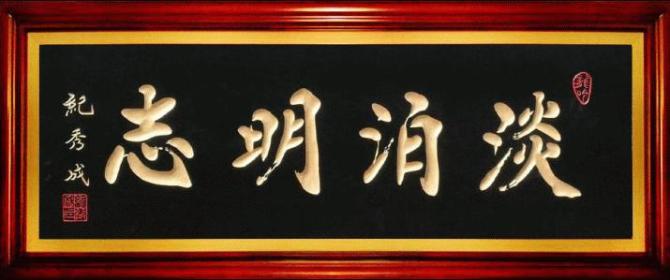 淡泊明志
紀秀成